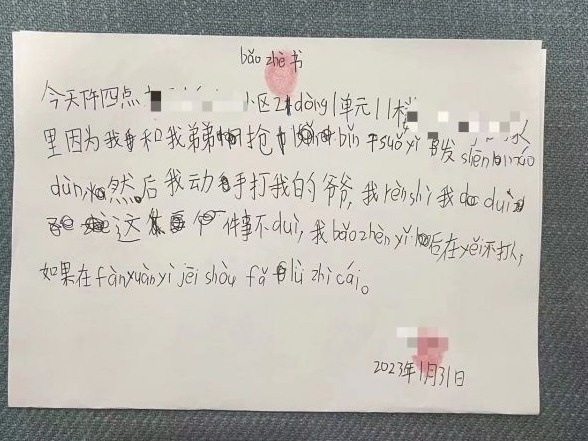 bǎo zhè书
今天下午四点 小区2dòng1单元11楼
里因为我和我弟弟抢 bǐn 干suǒ yǐ 发shēn
dùn,然后我动手打我的爷爷,我rèn shi我 duì
这个件事不duì,我bǎo zhèn yǐ后在yě不打人,
如果在fàn yuàn yì jiē shòu fǎ lǜ zhì cái。
2023年1月31日